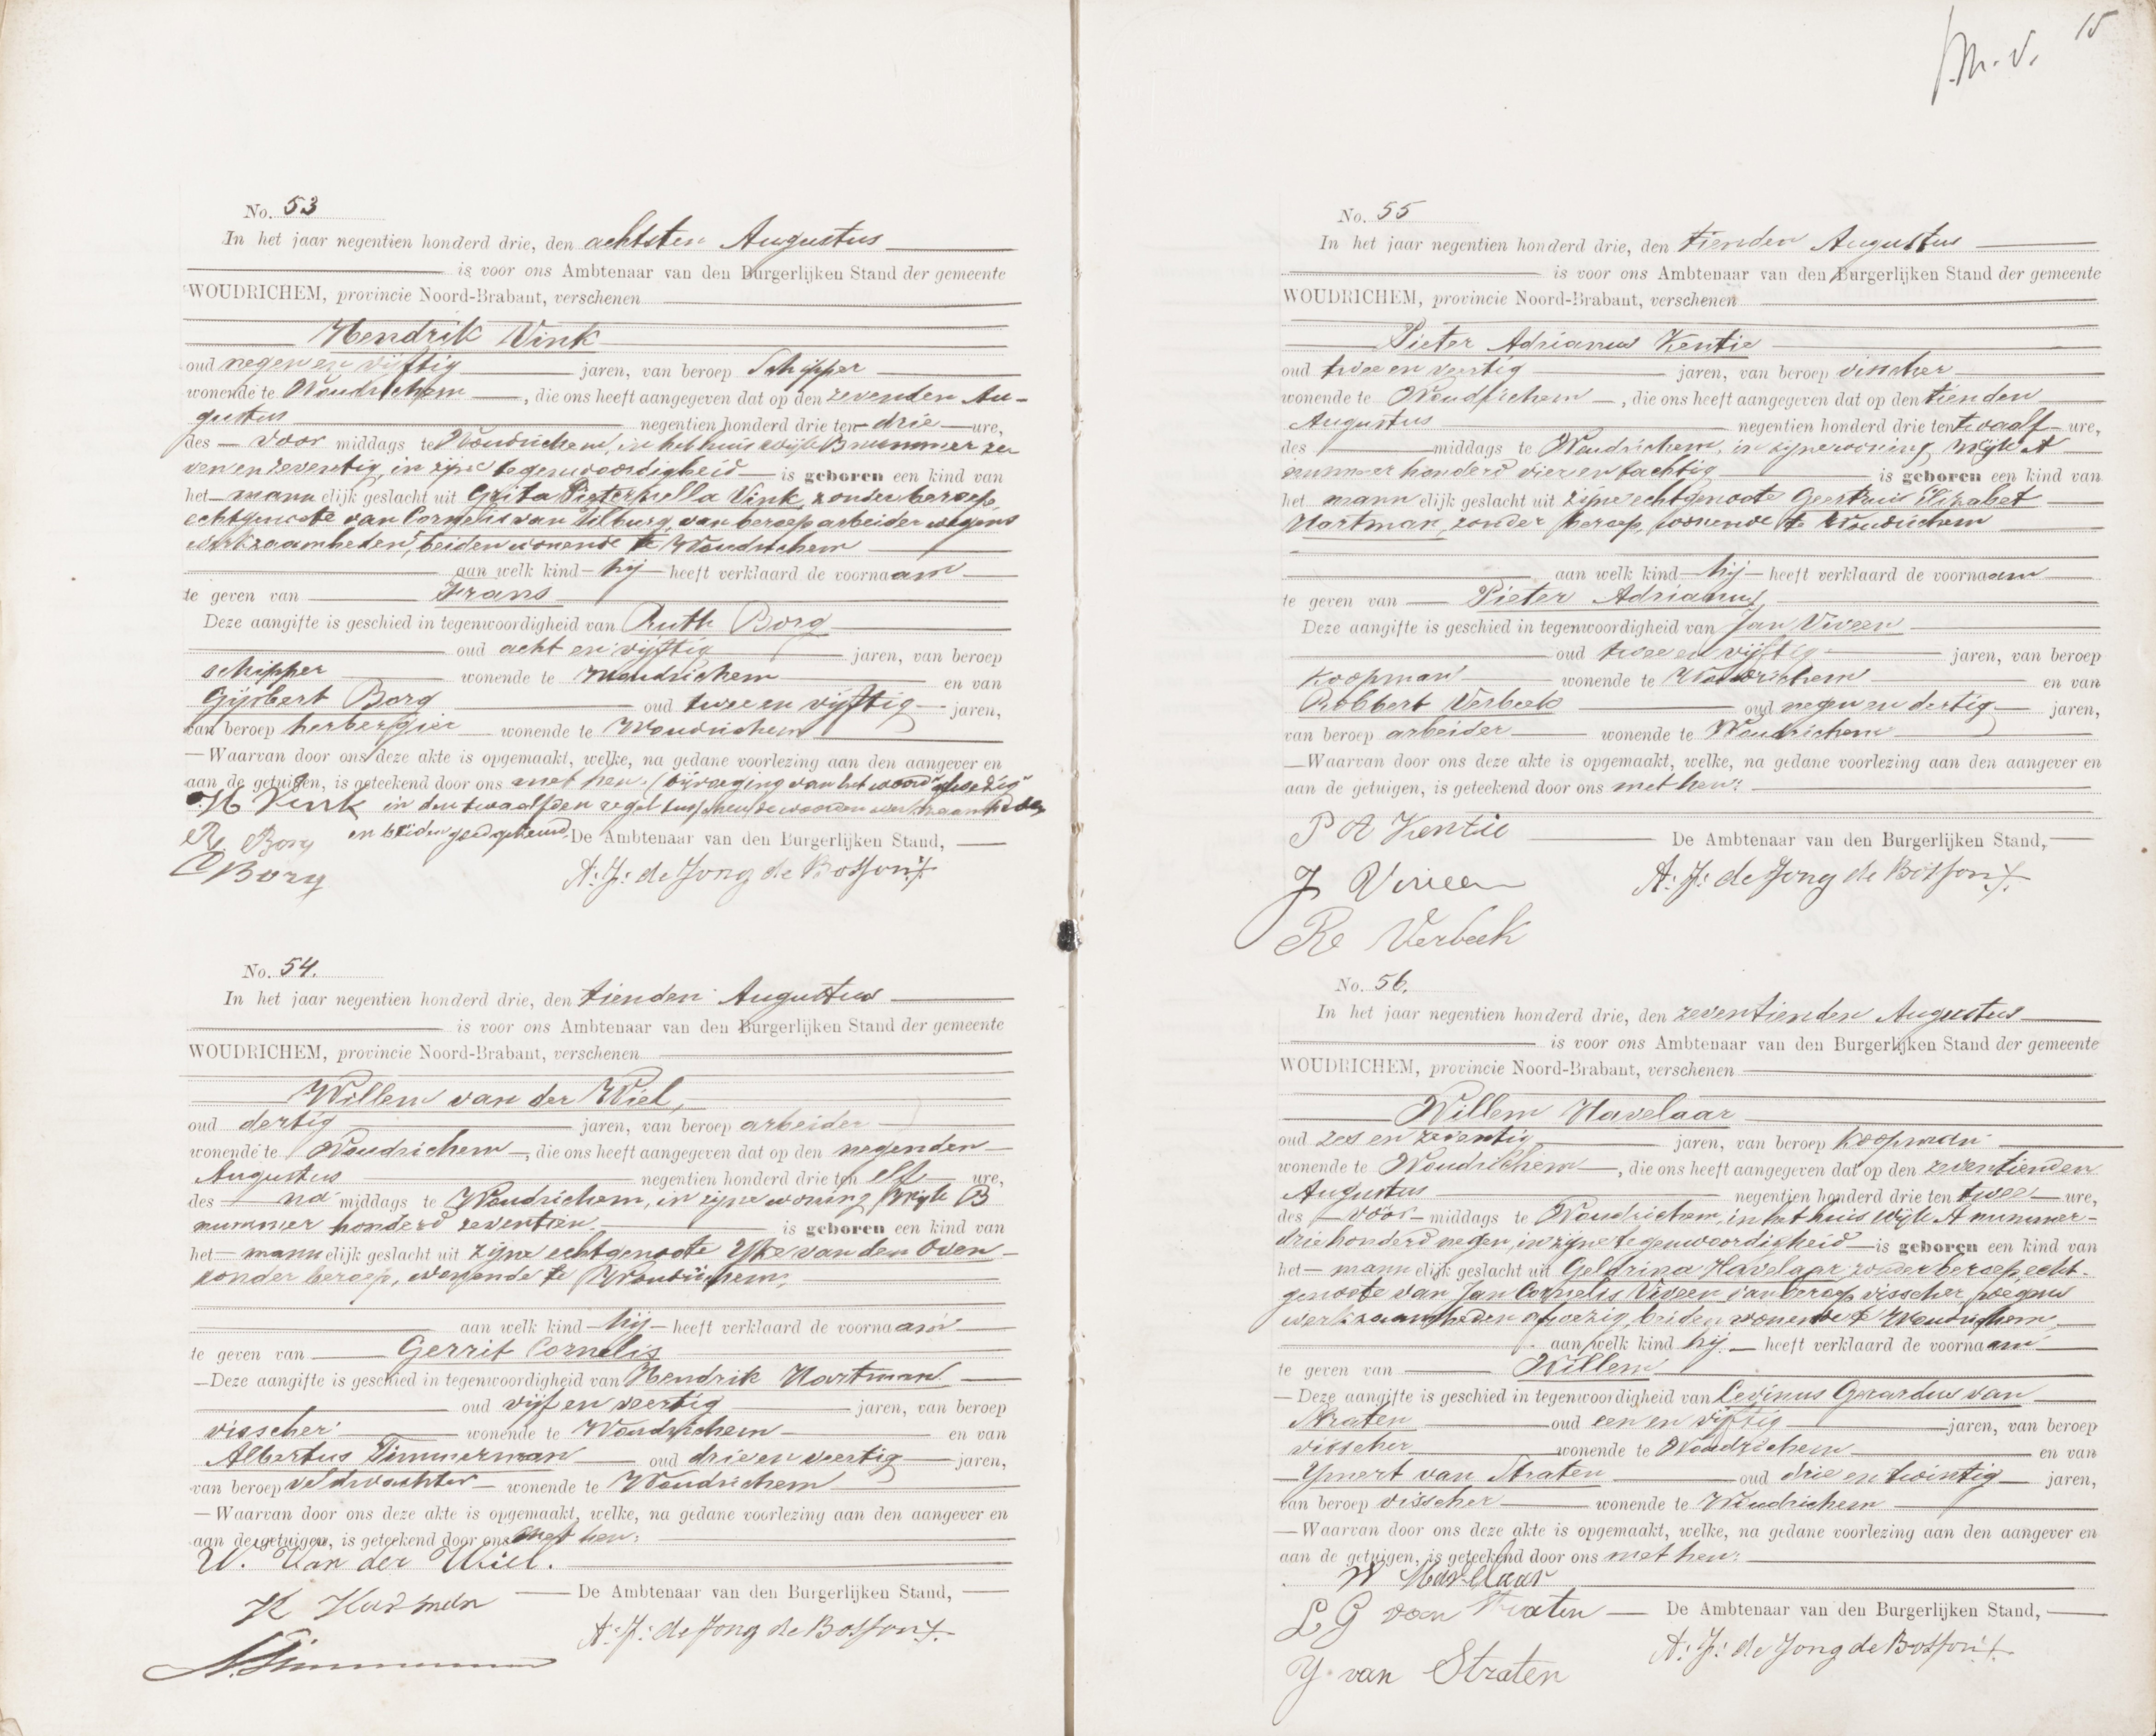 No. 53
In het jaar negentien honderd drie, den achtsten Augustus
is voor ons Ambtenaar van den Burgerlijken Stand der gemeente
WOUDRICHEM, provincie Noord-Brabant, verschenen
Hendrik Vink
oud negen en vijftig jaren, van beroep Schipper
wonende te Woudrichem, die ons heeft aangegeven dat op den zevenden Au-
gustus negentien honderd drie ten drie ure,
des voor middags te Woudrichem, in het huis wijk B nummer ze
ven en zeventig, in zijne tegenwoordigheid is geboren een kind van
het mannelijk geslacht uit Grita Pieternella Vink, zonder beroep,
echtgenoote van Cornelis van Tilburg, van beroep arbeider wegens
werkzaamheden, beiden wonende te Woudrichem
aan welk kind hij heeft verklaard de voornaam
te geven van Frans
Deze aangifte is geschied in tegenwoordigheid van Ruth Borg
oud acht en vijftig jaren, van beroep
schipper wonende te Woudrichem en van
Gijsbert Borg oud twee en vijftig jaren,
van beroep herbergier wonende te Woudrichem
Waarvan door ons deze akte is opgemaakt, welke, na gedane voorlezing aan den aangever en
aan de getuigen, is geteekend door ons met hen. (bijvoeging van het woord "afwezig"
H Vink in den twaalfden regel tusschen de woorden werkzaamheden
R. Borg en beiden goedgekeurd. De Ambtenaar van den Burgerlijken Stand,
G Borg A: J: de Jong de Bosson
No. 54.
In het jaar negentien honderd drie, den tienden Augustus
is voor ons Ambtenaar van den Burgerlijken Stand der gemeente
WOUDRICHEM, provincie Noord-Brabant, verschenen
Willem van der Wiel,
oud dertig jaren, van beroep arbeider
wonende te Woudrichem, die ons heeft aangegeven dat op den negenden
Augustus negentien honderd drie ten elf ure,
des na middags te Woudrichem, in zijne woning, Wijk B
nummer honderd zeventien is geboren een kind van
het mannelijk geslacht uit zijne echtgenoote Yke van den Oven
zonder beroep, wonende te Woudrichem,
aan welk kind hij heeft verklaard de voornaam
te geven van Gerrit Cornelis
Deze aangifte is geschied in tegenwoordigheid van Hendrik Hartman
oud vijf en veertig jaren, van beroep
visscher wonende te Woudrichem en van
Albertus Timmerman oud drie en veertig jaren,
van beroep veldwachter wonende te Woudrichem
Waarvan door ons deze akte is opgemaakt, welke, na gedane voorlezing aan den aangever en
aan de getuigen, is geteekend door ons met hen:
W. Van der Wiel.
H Hartman De Ambtenaar van den Burgerlijken Stand,
A. Timmerman A: J: de Jong de Bosson
15
No. 55
In het jaar negentien honderd drie, den tienden Augustus
is voor ons Ambtenaar van den Burgerlijken Stand der gemeente
WOUDRICHEM, provincie Noord-Brabant, verschenen
Pieter Adrianus Kentie
oud twee en veertig jaren, van beroep visscher
wonende te Woudrichem, die ons heeft aangegeven dat op den tienden
Augustus negentien honderd drie ten twaalf ure,
des middags te Woudrichem, in zijne woning, Wijk A
nummer honderd vier en tachtig is geboren een kind van
het mannelijk geslacht uit zijne echtgenoote Geertrui Elizabet
Hartman, zonder beroep, wonende te Woudrichem
aan welk kind hij heeft verklaard de voornaam
te geven van Pieter Adrianus
Deze aangifte is geschied in tegenwoordigheid van Jan Viveen
oud twee en vijftig jaren, van beroep
Koopman wonende te Woudrichem en van
Robbert Verbeek oud negen en dertig jaren,
van beroep arbeider wonende te Woudrichem
Waarvan door ons deze akte is opgemaakt, welke, na gedane voorlezing aan den aangever en
aan de getuigen, is geteekend door ons met hen:
P A Kentie De Ambtenaar van den Burgerlijken Stand,
J Viveen A: J: de Jong de Bosson
Rt Verbeek
No. 56.
In het jaar negentien honderd drie, den zeventienden Augustus
is voor ons Ambtenaar van den Burgerlijken Stand der gemeente
WOUDRICHEM, provincie Noord-Brabant, verschenen
Willem Havelaar
oud zes en zeventig jaren, van beroep Koopman
wonende te Woudrichem, die ons heeft aangegeven dat op den zeventienden
Augustus negentien honderd drie ten twee ure,
des voor middags te Woudrichem, in het huis Wijk A nummer
driehonderd negen, in zijne tegenwoordigheid is geboren een kind van
het mannelijk geslacht uit Geldrina Havelaar, zonder beroep, echt-
genoote van Jan Cornelis Viveen van beroep visscher, wegens
werkzaamheden afwezig, beiden wonende te Woudrichem,
aan welk kind hij heeft verklaard de voornaam
te geven van Willem
Deze aangifte is geschied in tegenwoordigheid van Levinus Gerardus van
Straten oud een en vijftig jaren, van beroep
visscher wonende te Woudrichem en van
Ymert van Straten oud drie en twintig jaren,
van beroep visscher wonende te Woudrichem
Waarvan door ons deze akte is opgemaakt, welke, na gedane voorlezing aan den aangever en
aan de getuigen, is geteekend door ons met hen:
W Havelaar
L G van Straten De Ambtenaar van den Burgerlijken Stand,
Y van Straten A: J: de Jong de Bosson